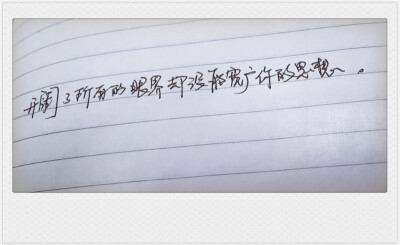 开阔了所有的眼界却没能宽广你的思想。